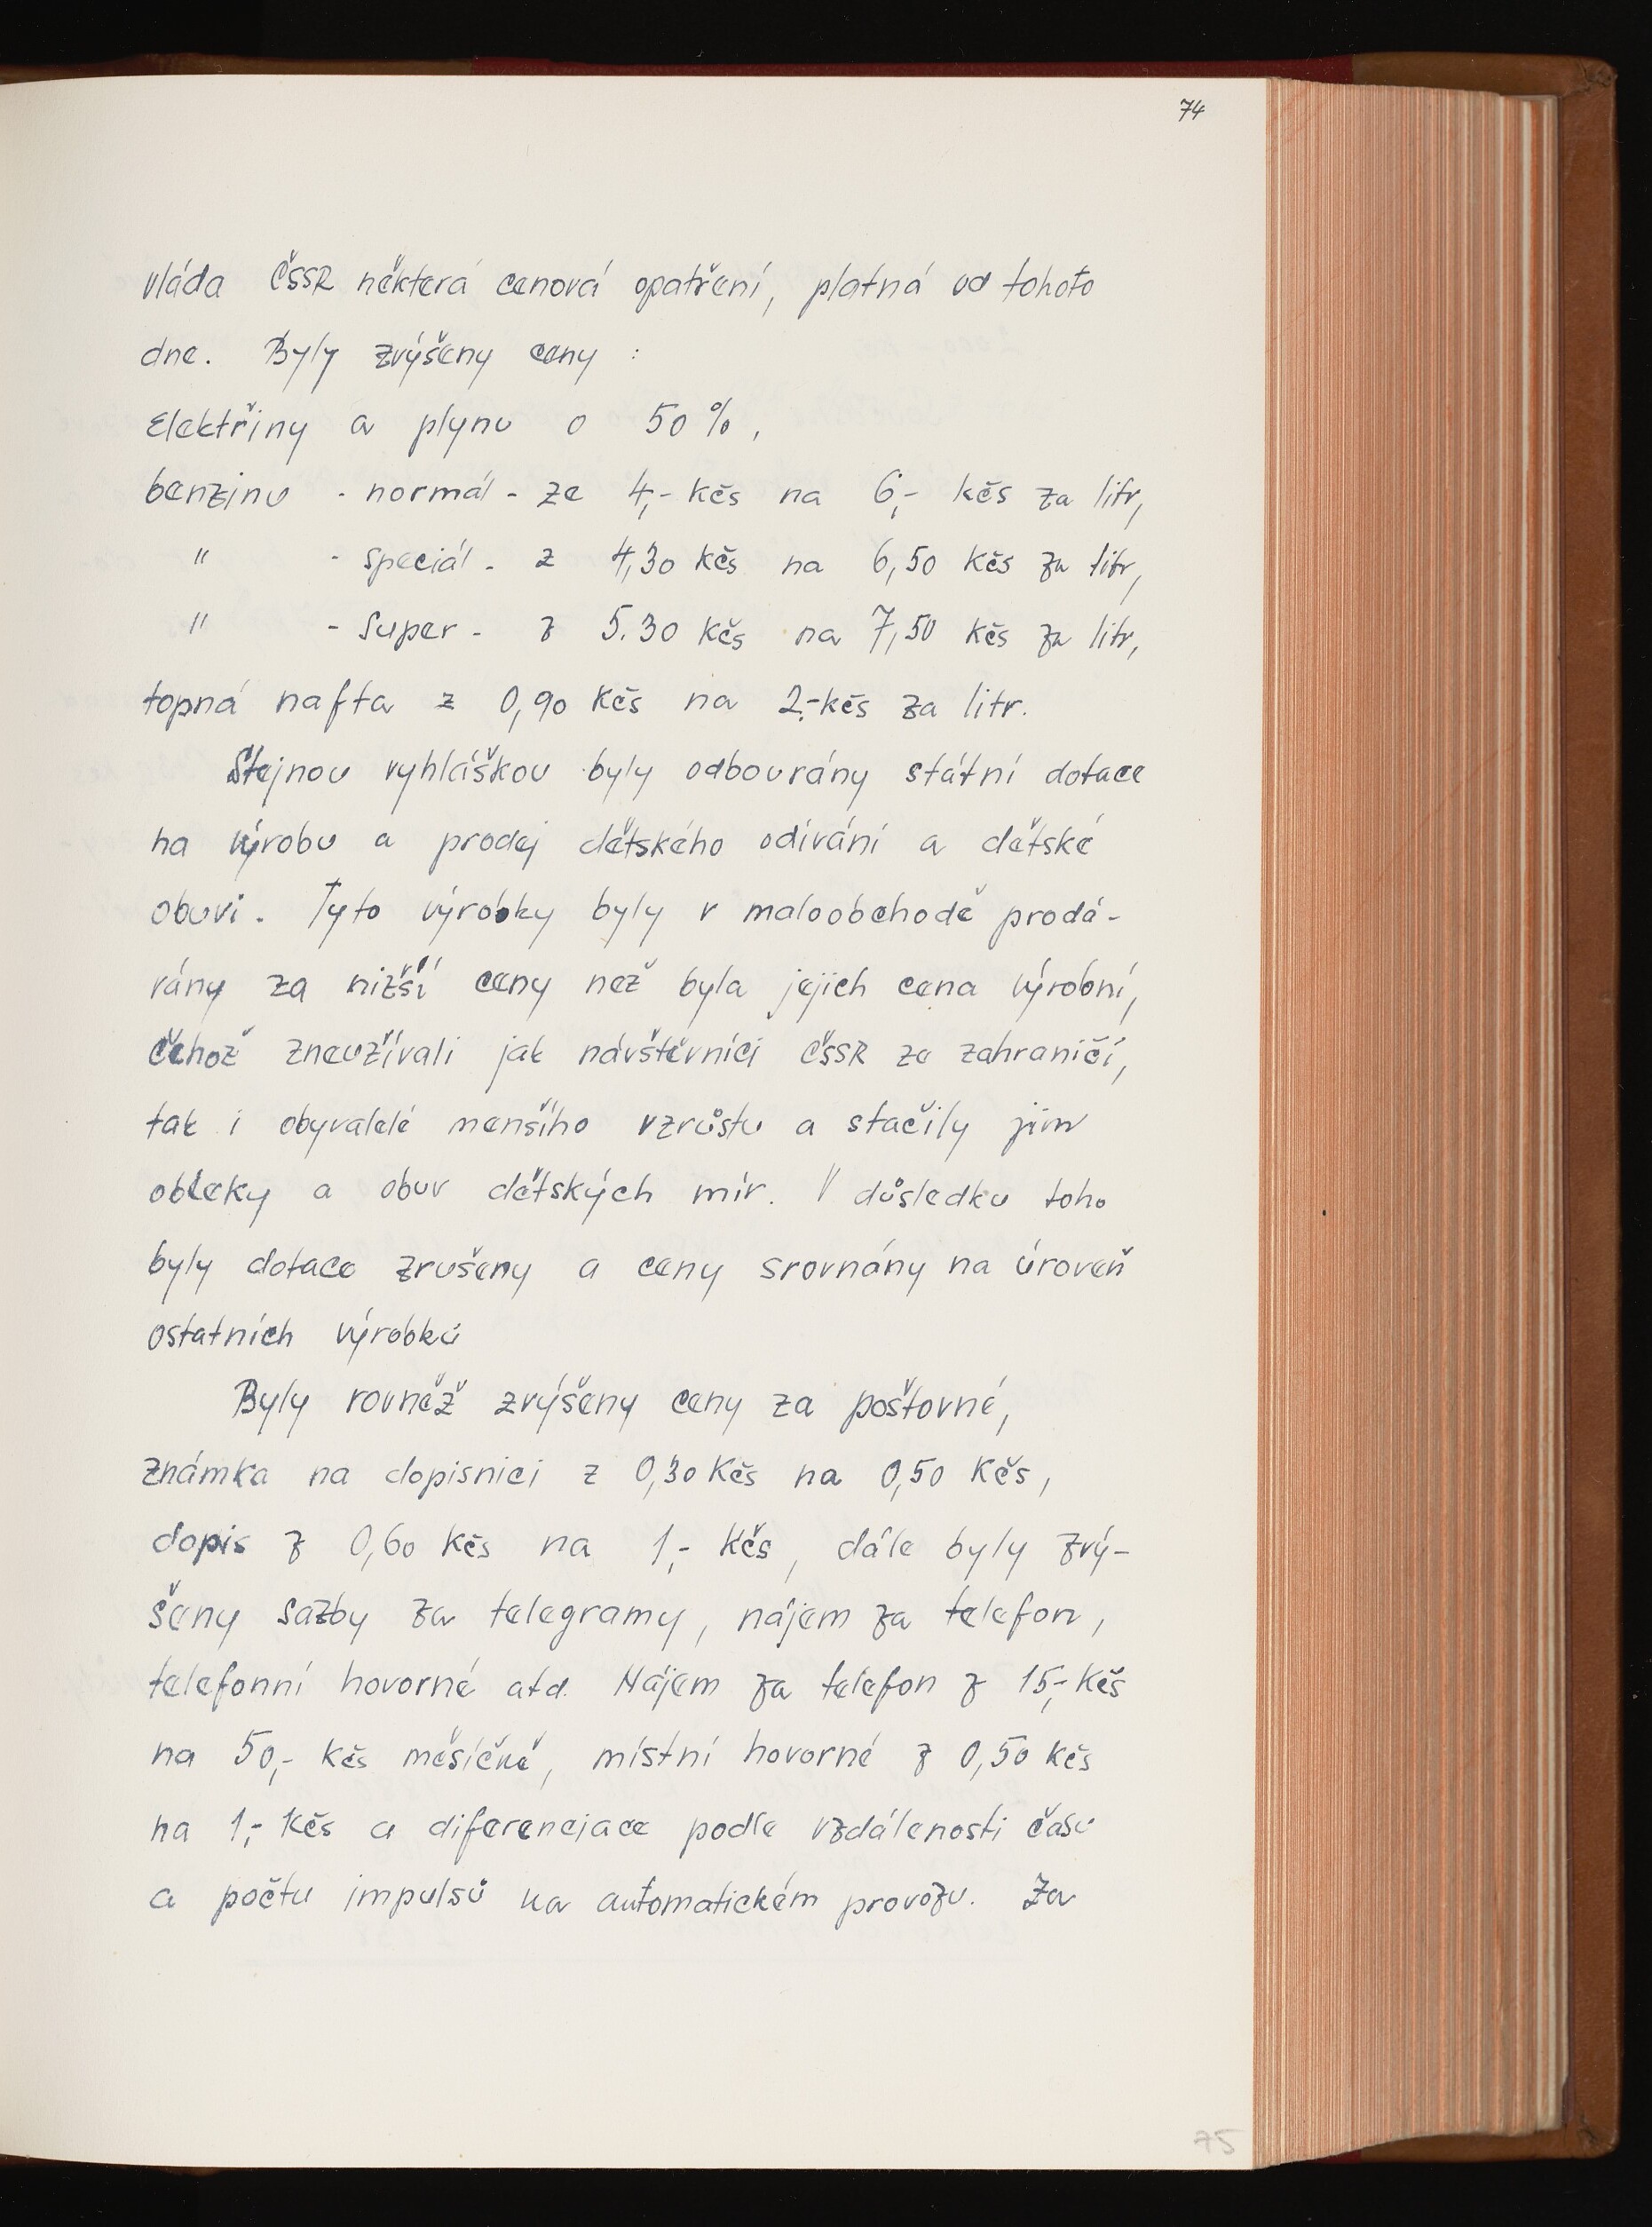 74
vláda ČSSR některá cenová opatření, platná od tohoto
dne. Byly zvýšeny ceny :
elektřiny a plynu o 50 %,
benzinu - normál - ze 4,- Kčs na 6,- Kčs za litr,
" - speciál - z 4,30 Kčs na 6,50 Kčs za litr,
" - super - z 5.30 Kčs na 7,50 Kčs za litr,
topná nafta z 0,90 Kčs na 2,- Kčs za litr.
Stejnou vyhláškou byly odbourány státní dotace
na výrobu a prodej dětského odívání a dětské
obuvi. Tyto výrobky byly v maloobchodě prodá-
vány za nižší ceny než byla jejich cena výrobní,
čehož zneužívali jak návštěvníci ČSSR ze zahraničí,
tak i obyvatelé menšího vzrůstu a stačily jim
obleky a obuv dětských mír. V důsledku toho
byly dotace zrušeny a ceny srovnány na úroveň
ostatních výrobků
Byly rovněž zvýšeny ceny za poštovné,
známka na dopisnici z 0,30 Kčs na 0,50 Kčs,
dopis z 0,60 Kčs na 1,- Kčs, dále byly zvý-
šeny sazby za telegramy, nájem za telefon,
telefonní hovorné atd. Nájem za telefon z 15,- Kčs
na 50,- Kčs měsíčně, místní hovorné z 0,50 Kčs
na 1,- Kčs a diferencjace podle vzdálenosti času
a počtu impulsů na automatickém provozu. Za
75